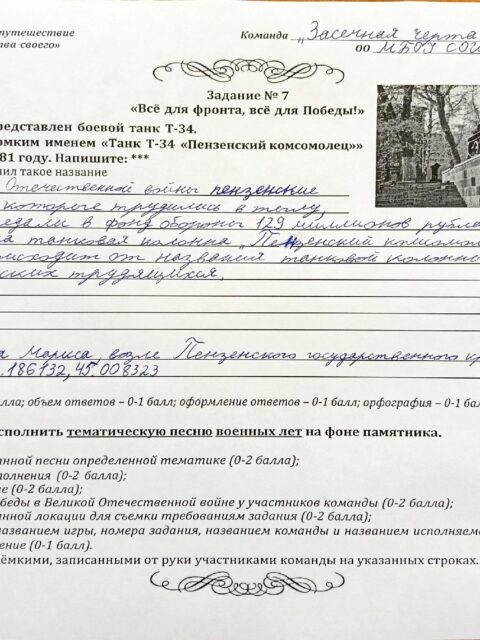 путешествие
Команда „Засечная черта
ва своего»
ОО МБОУ СОШ
Задание № 7
«Всё для фронта, всё для Победы!»
редставлен боевой танк Т-34.
омким именем «Танк Т-34 «Пензенский комсомолец»»
81 году. Напишите: ***
чил такое название
Отечественной войны пензенские
которые трудились в тылу,
едали в фонд обороны 129 миллионов рубле
ка танковая колонна „Пензенский комсомол
оисходит от названия танковой колонны
ских трудящихся.
а Маркса, возле Пензенского государственного кр
.186132, 45.008323
алла; объем ответов – 0-1 балл; оформление ответов – 0-1 балл; орфография – 0-1 бал
сполнить тематическую песню военных лет на фоне памятника.
анной песни определенной тематике (0-2 балла);
полнения (0-2 балла);
ие (0-2 балла);
обеды в Великой Отечественной войне у участников команды (0-2 балла);
анной локации для съемки требованиям задания (0-2 балла);
названием игры, номера задания, названием команды и названием исполняемо
ение (0-1 балл).
ёмкими, записанными от руки участниками команды на указанных строках.